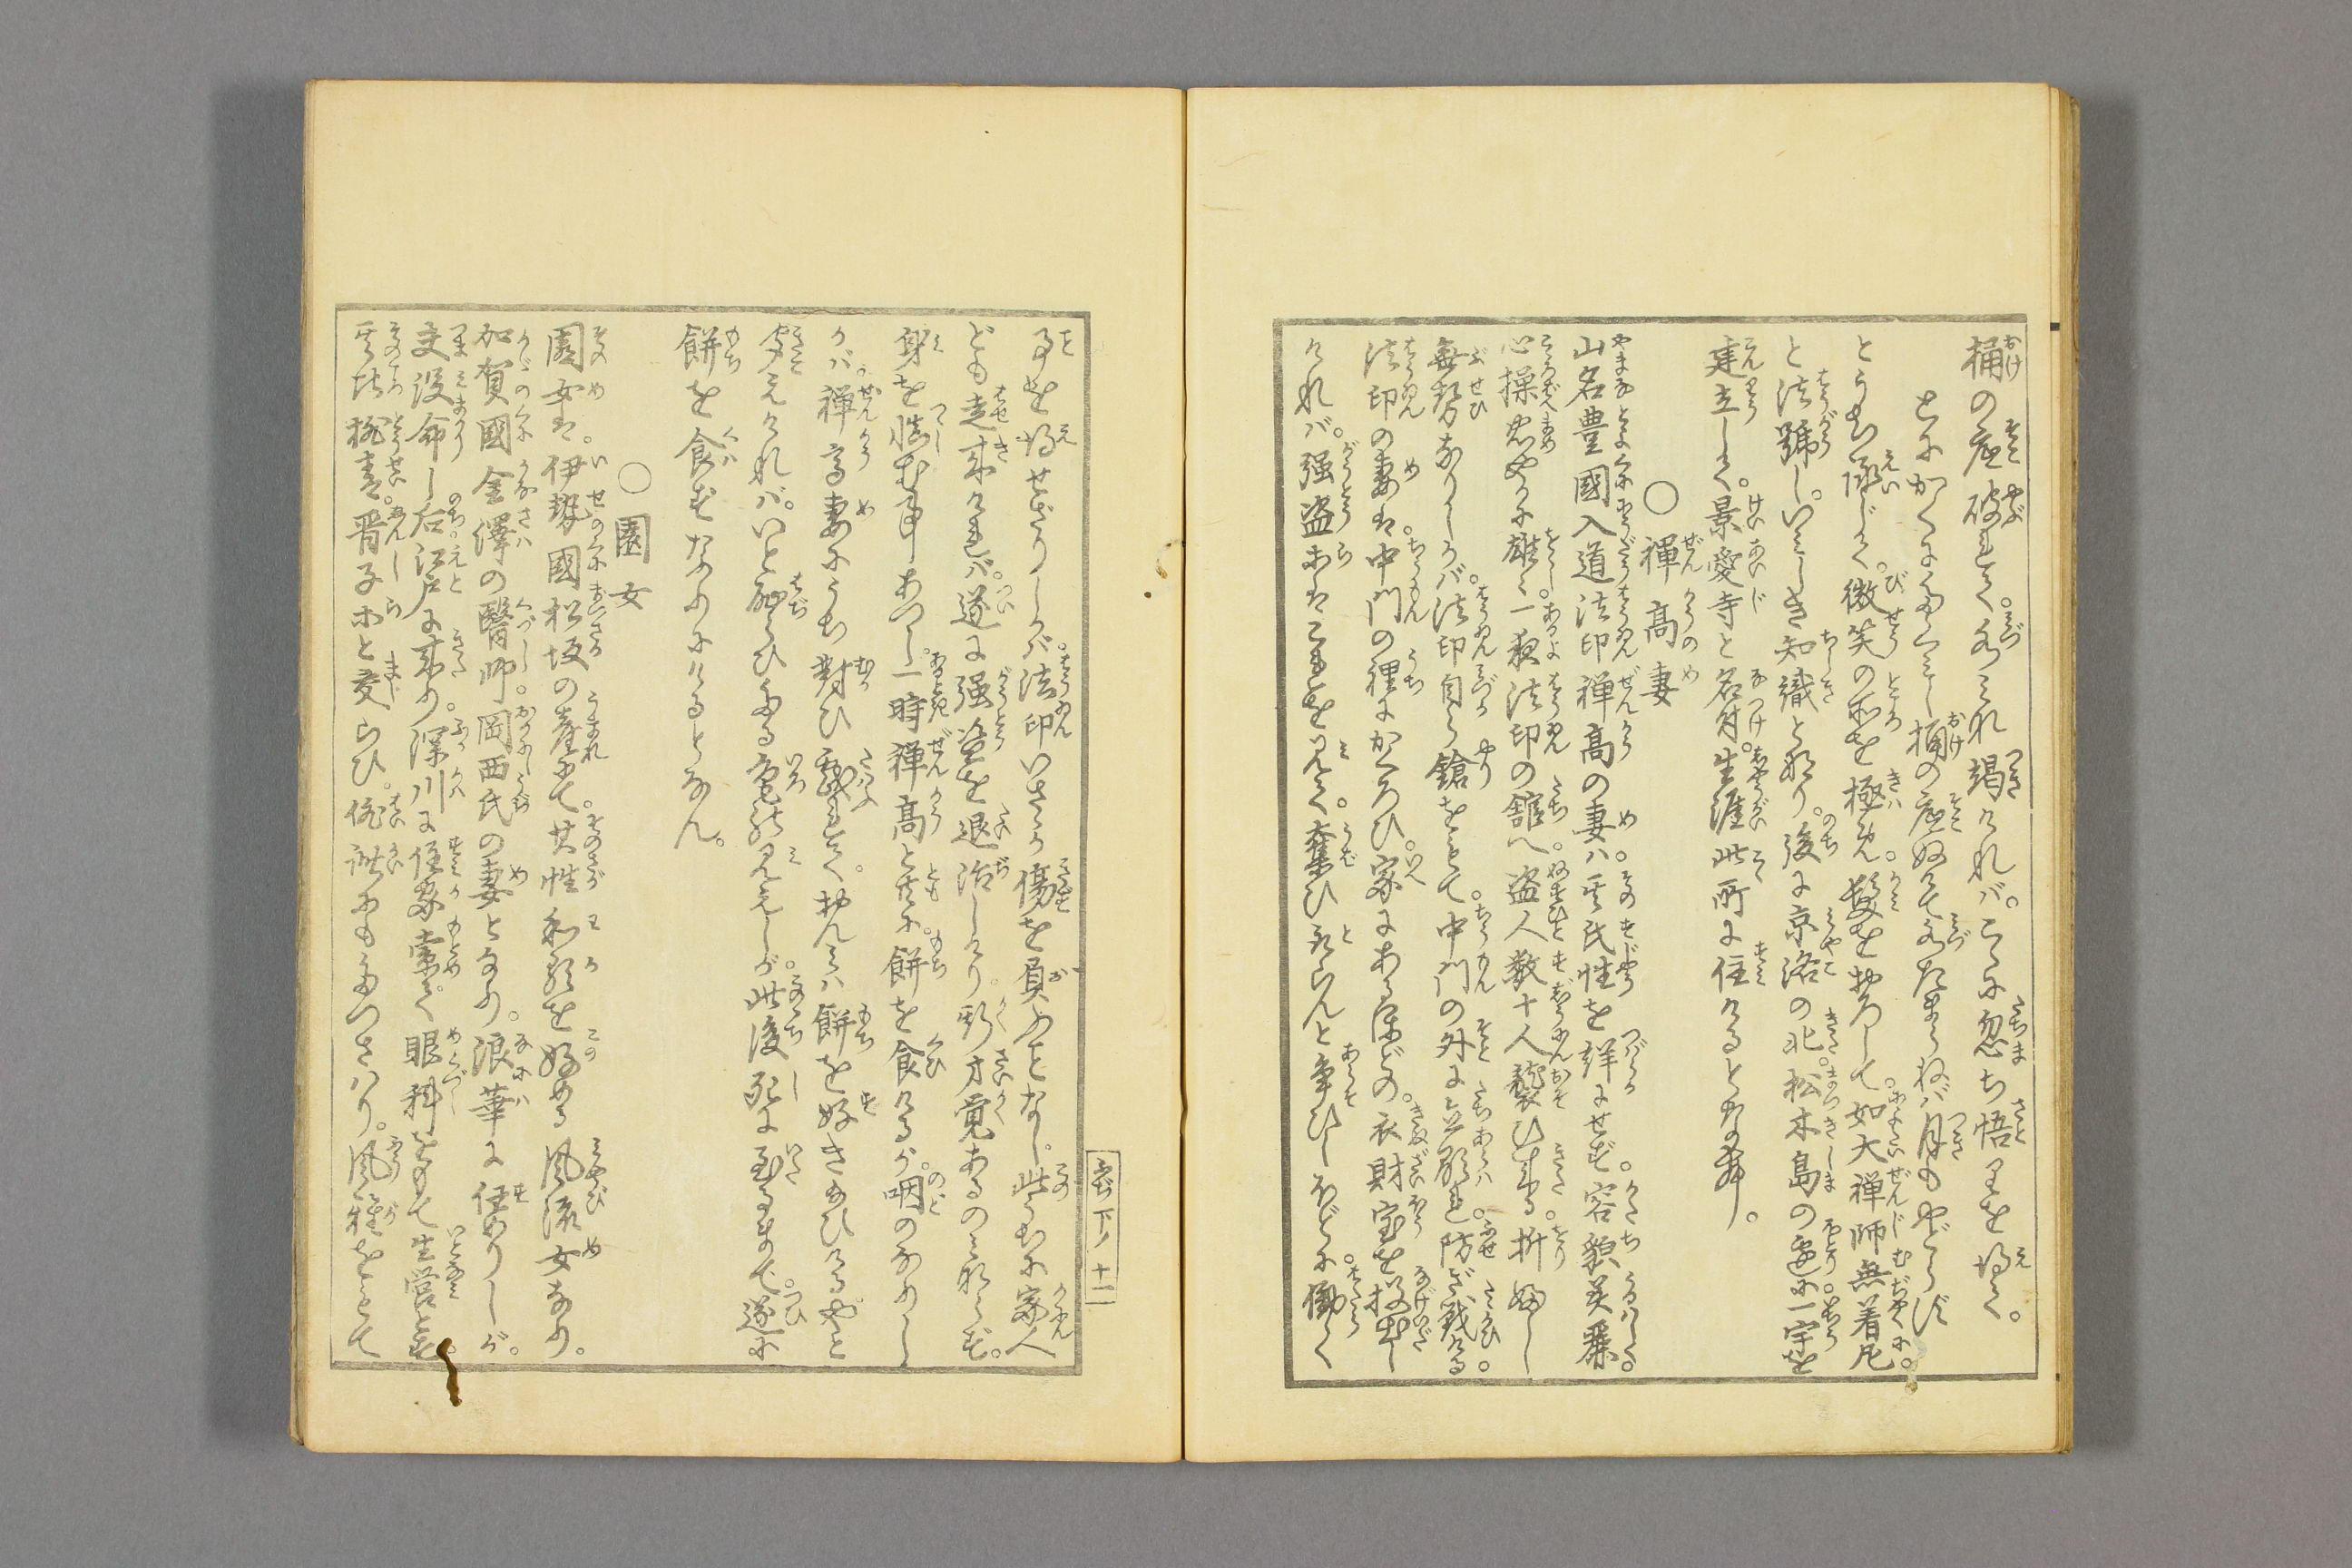 桶の底破れて。水これ竭ければ。こゝに忽ち悟りを得て。
とにかくにたくみし桶の底ぬけて水たまらねば月もやどらず
とうち詠じて。微笑の所を極め。髪をおろして。如大禅師無着尼
と法號し。いみじき知識となり。後に京洛の北。松木島の辺に一宇を
建立して。景愛寺と名付。生涯此所に住けるとなむ。
〇禅高妻
山名豊國入道法印禅高の妻ハ。其氏性を詳にせず。容貌美麗。
心操忠やかに雄々し。一夜法印の舘へ。盗人数十人襲ひ来る。折ふし
無勢なりしかバ。法印自ら鎗をもて。中門の外に立顕れ防ぎ戦ひける。
法印の妻は。中門の裡にかくろひ。家にあるほどの。衣財宝を投出し
けれバ。强盗等はこれを見て。奪ひ取らんと争ひしほどに。働く
事を得せざりしかバ。法印いさゝか傷を負ふことなし。此うちに家人
ども走来けれバ。遂に强盗を退治しけり。斯才覚あるのみならず。
身を慎む事あつし。一時禅高と共に。餅を食けるが。咽のなりし
かバ。禅高妻にうち対ひ戯れて。おんミハ餅を好き給ひけるやと
聞えけれバ。いと恥らひたる色に見えしが。此後死に至るまで。遂に
餅を食ずなりにけるとなん。
〇園女
園女は。伊勢國松坂の産にて。其性和歌を好める風流女なり。
加賀國金澤の醫師岡西氏の妻となり。浪華に住めりしが。
夫没命し后。江戸に来り。深川に住家索て。眼科をもて生営とす。
其比桃青。晋子等と交らひ。俳諧にもたづさハり。風雅をもて
忠下ノ十二